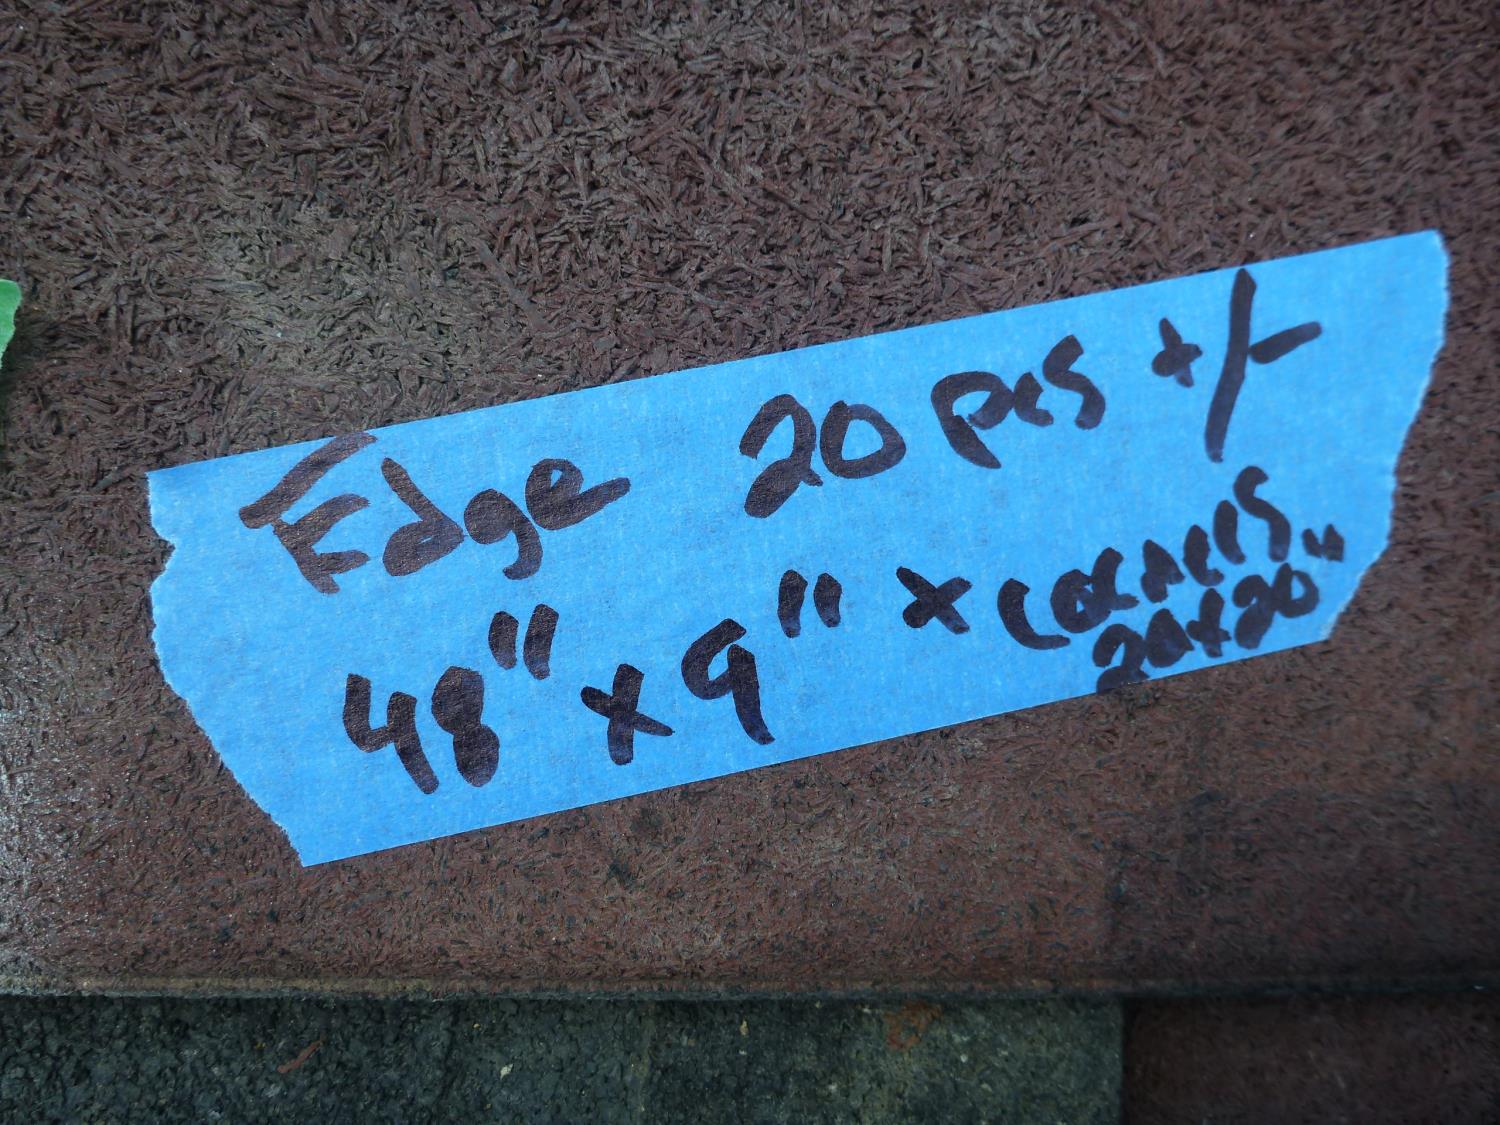 Edge 20 pcs +/-
48" x 9" x corners
20x20"